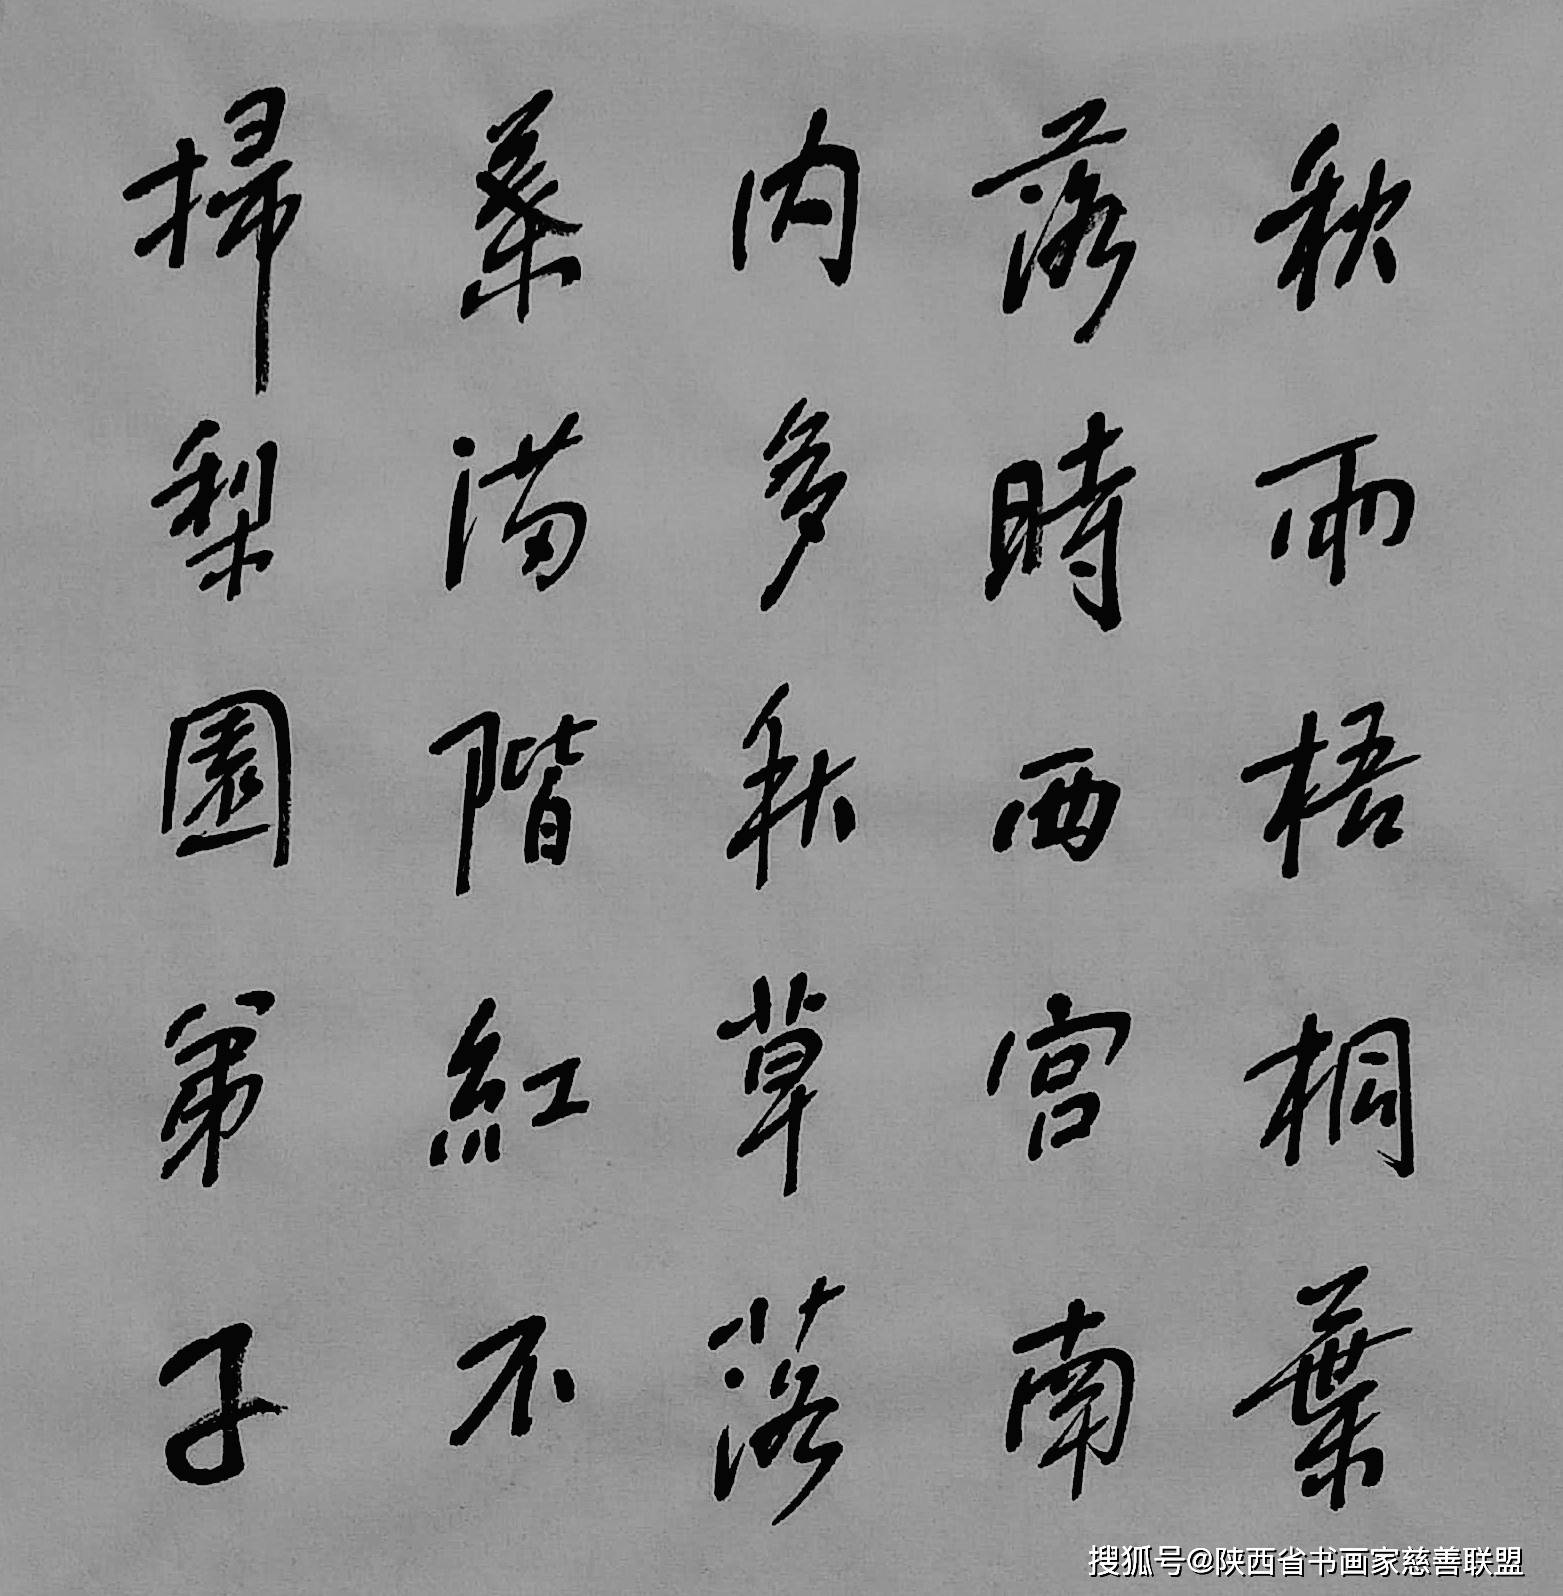 秋雨梧桐葉
落時西宮南
内多秋草落
葉滿階紅不
掃梨園弟子
搜狐号@陕西省书画家慈善联盟